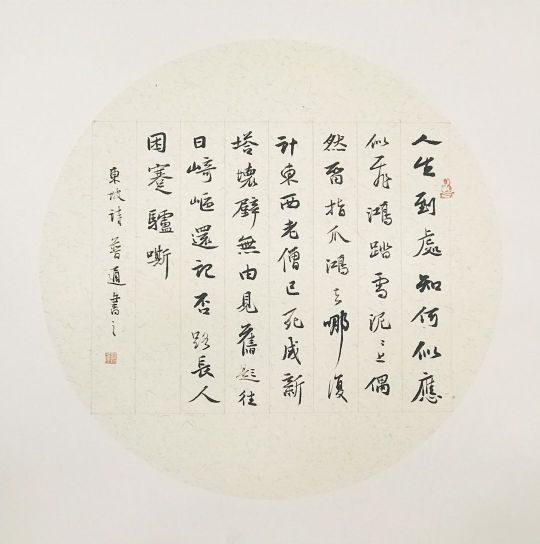 人生到處知何似應
似飛鴻踏雪泥〻上偶
然留指爪鴻哪復
計東西老僧已死成新
塔壞壁無由見舊題往
日崎嶇還記否路長人
困蹇驢嘶
東坡詩書之